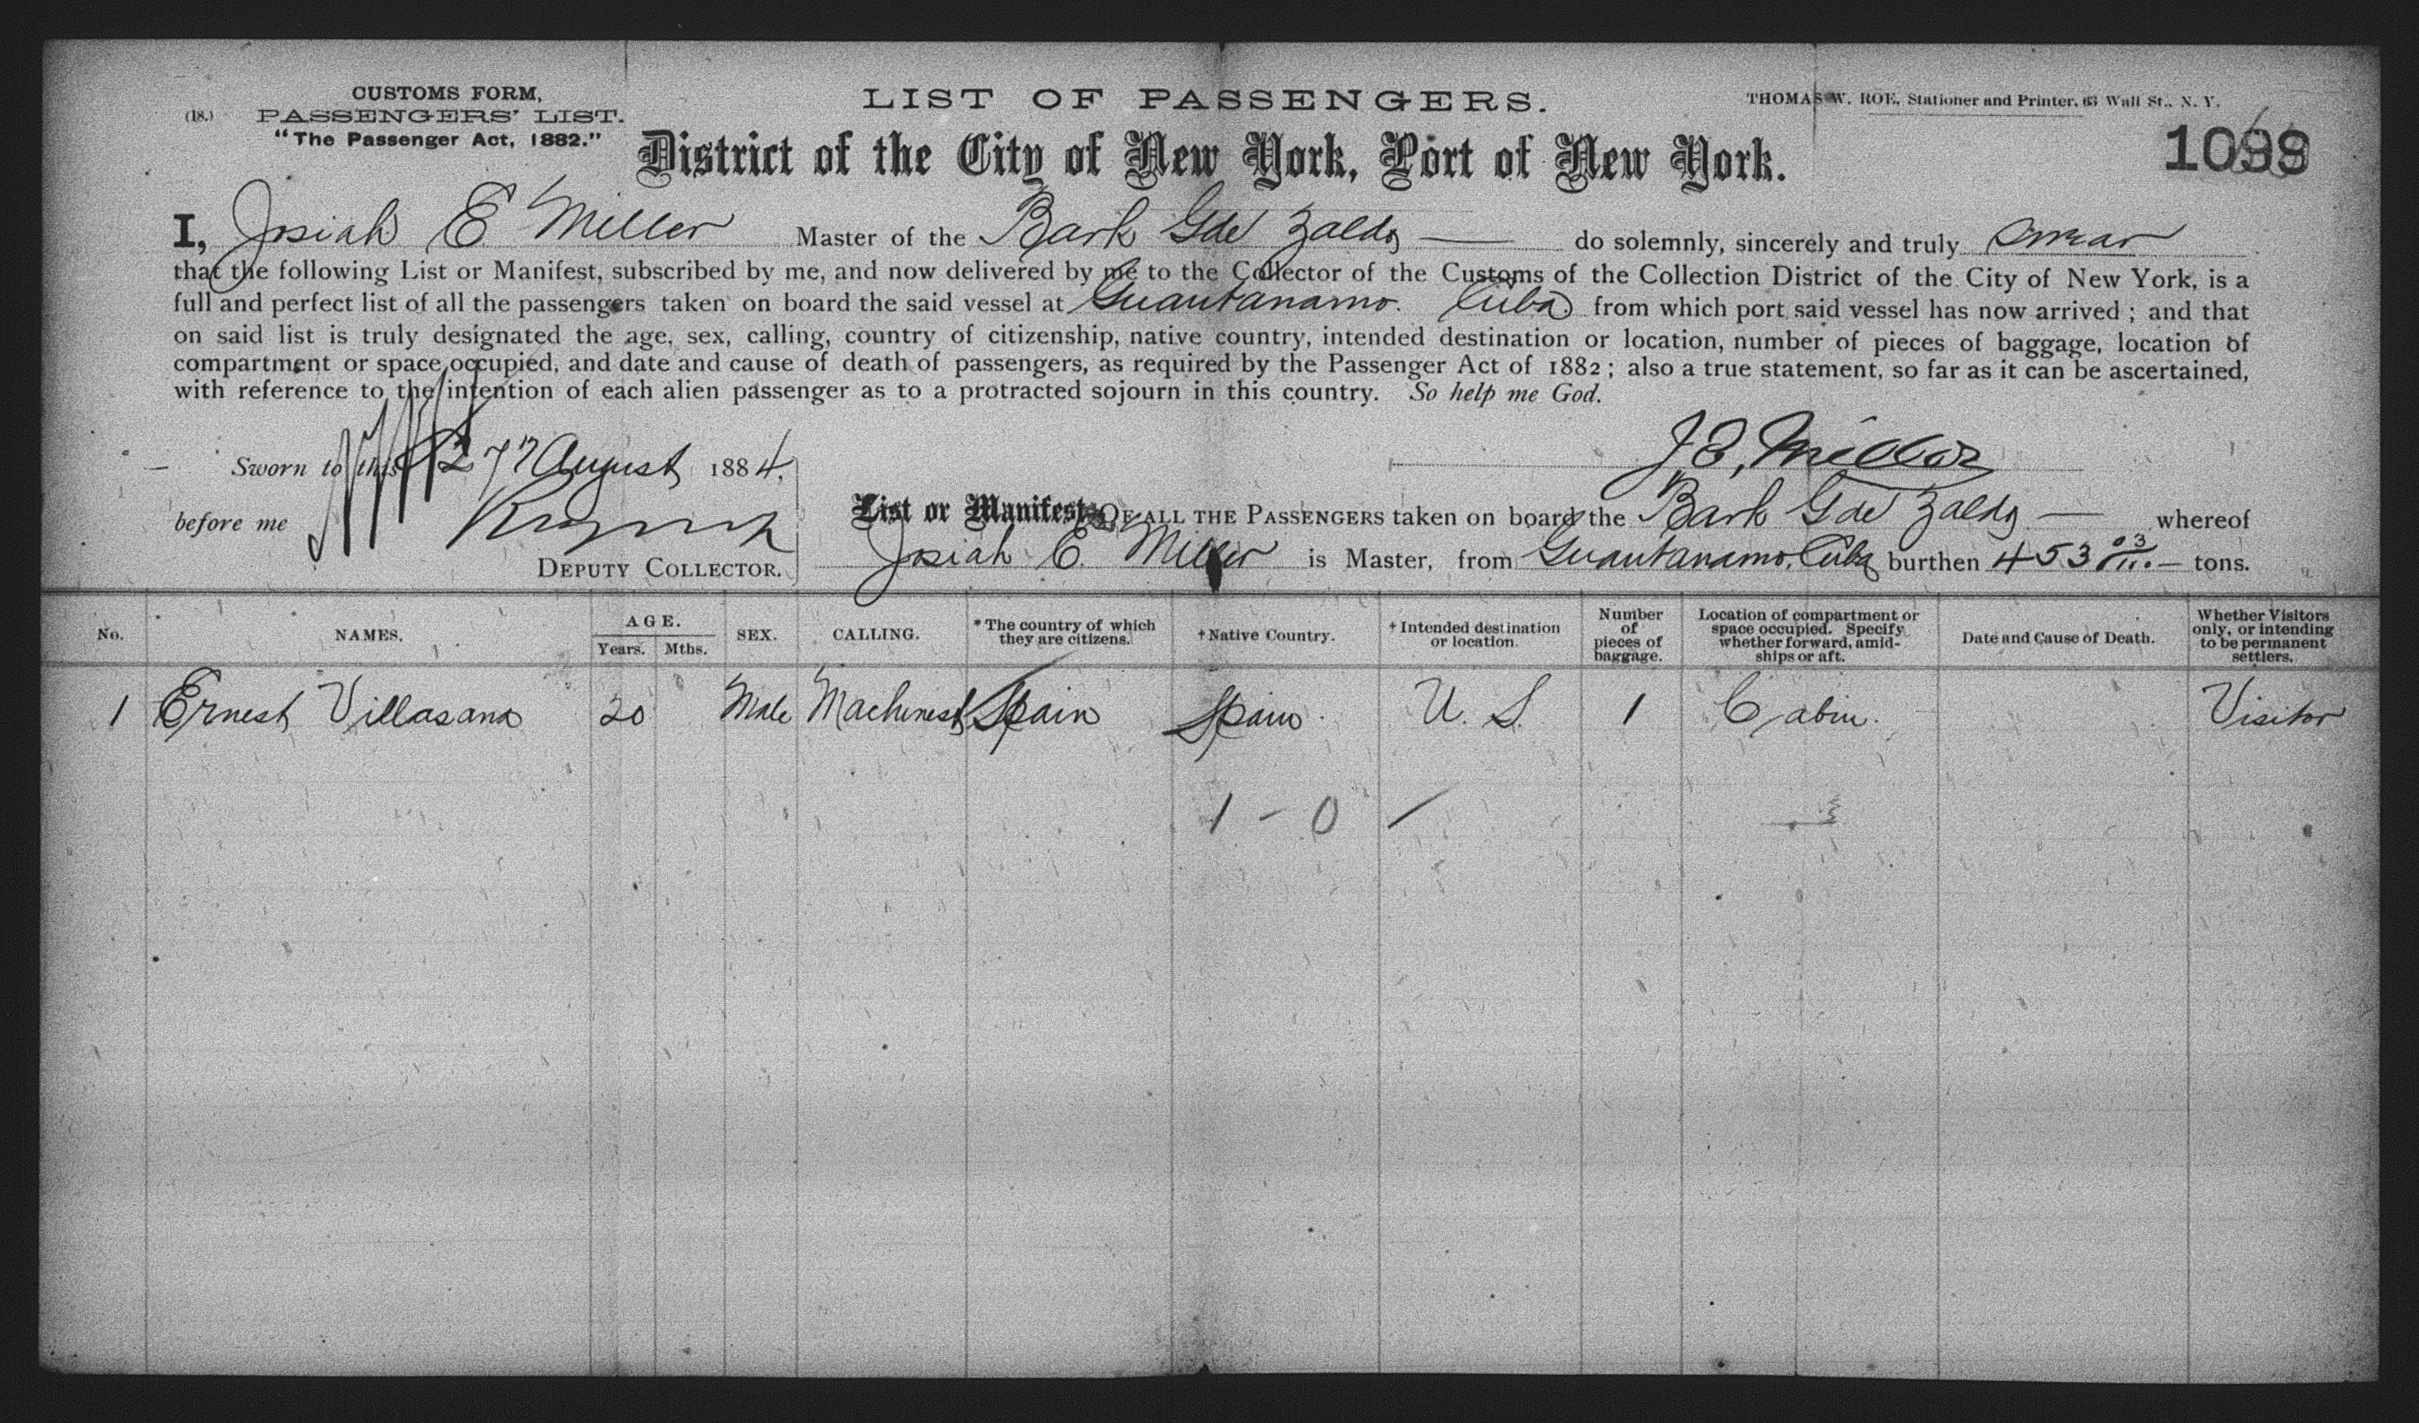 CUSTOMS FORM,
(18.) PASSENGERS' LIST.
"The Passenger Act, 1882."
LIST OF PASSENGERS.
THOMAS W. ROE, Stationer and Printer, 63 Wall St., N. Y.
District of the City of New York, Port of New York.
I, Josiah E Miller Master of the Bark Gde Zaldo do solemnly, sincerely and truly swear
that the following List or Manifest, subscribed by me, and now delivered by me to the Collector of the Customs of the Collection District of the City of New York, is a
full and perfect list of all the passengers taken on board the said vessel at Guantanamo. Cuba from which port said vessel has now arrived ; and that
on said list is truly designated the age, sex, calling, country of citizenship, native country, intended destination or location, number of pieces of baggage, location of
compartment or space occupied, and date and cause of death of passengers, as required by the Passenger Act of 1882 ; also a true statement, so far as it can be ascertained,
with reference to the intention of each alien passenger as to a protracted sojourn in this country. So help me God.
J. E. Miller
Sworn to this 27" August 1884.
before me
DEPUTY COLLECTOR.
List or Manifest OF ALL THE PASSENGERS taken on board the Bark Gde Zaldo whereof
Josiah E. Miller is Master, from Guantanamo, Cuba burthen 453 tons.
No. NAMES. AGE. Years. Mths. SEX. CALLING. *The country of which they are citizens. †Native Country. †Intended destination or location. Number of pieces of baggage. Location of compartment or space occupied. Specify whether forward, amidships or aft. Date and Cause of Death. Whether Visitors only, or intending to be permanent settlers.
1 Ernest Villasana 20 Male Machinest Spain Spain U. S. 1 Cabin. Visitor
1 - 0 /